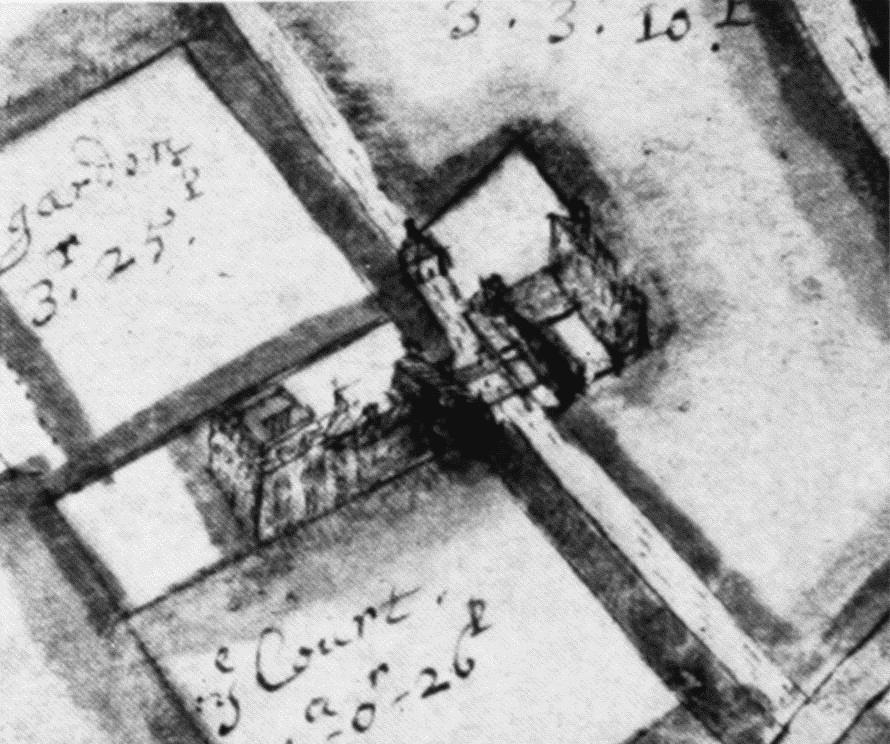 3. 3. 10. p
garden
r p
3. 25.
ye Court.
a r p
0-26